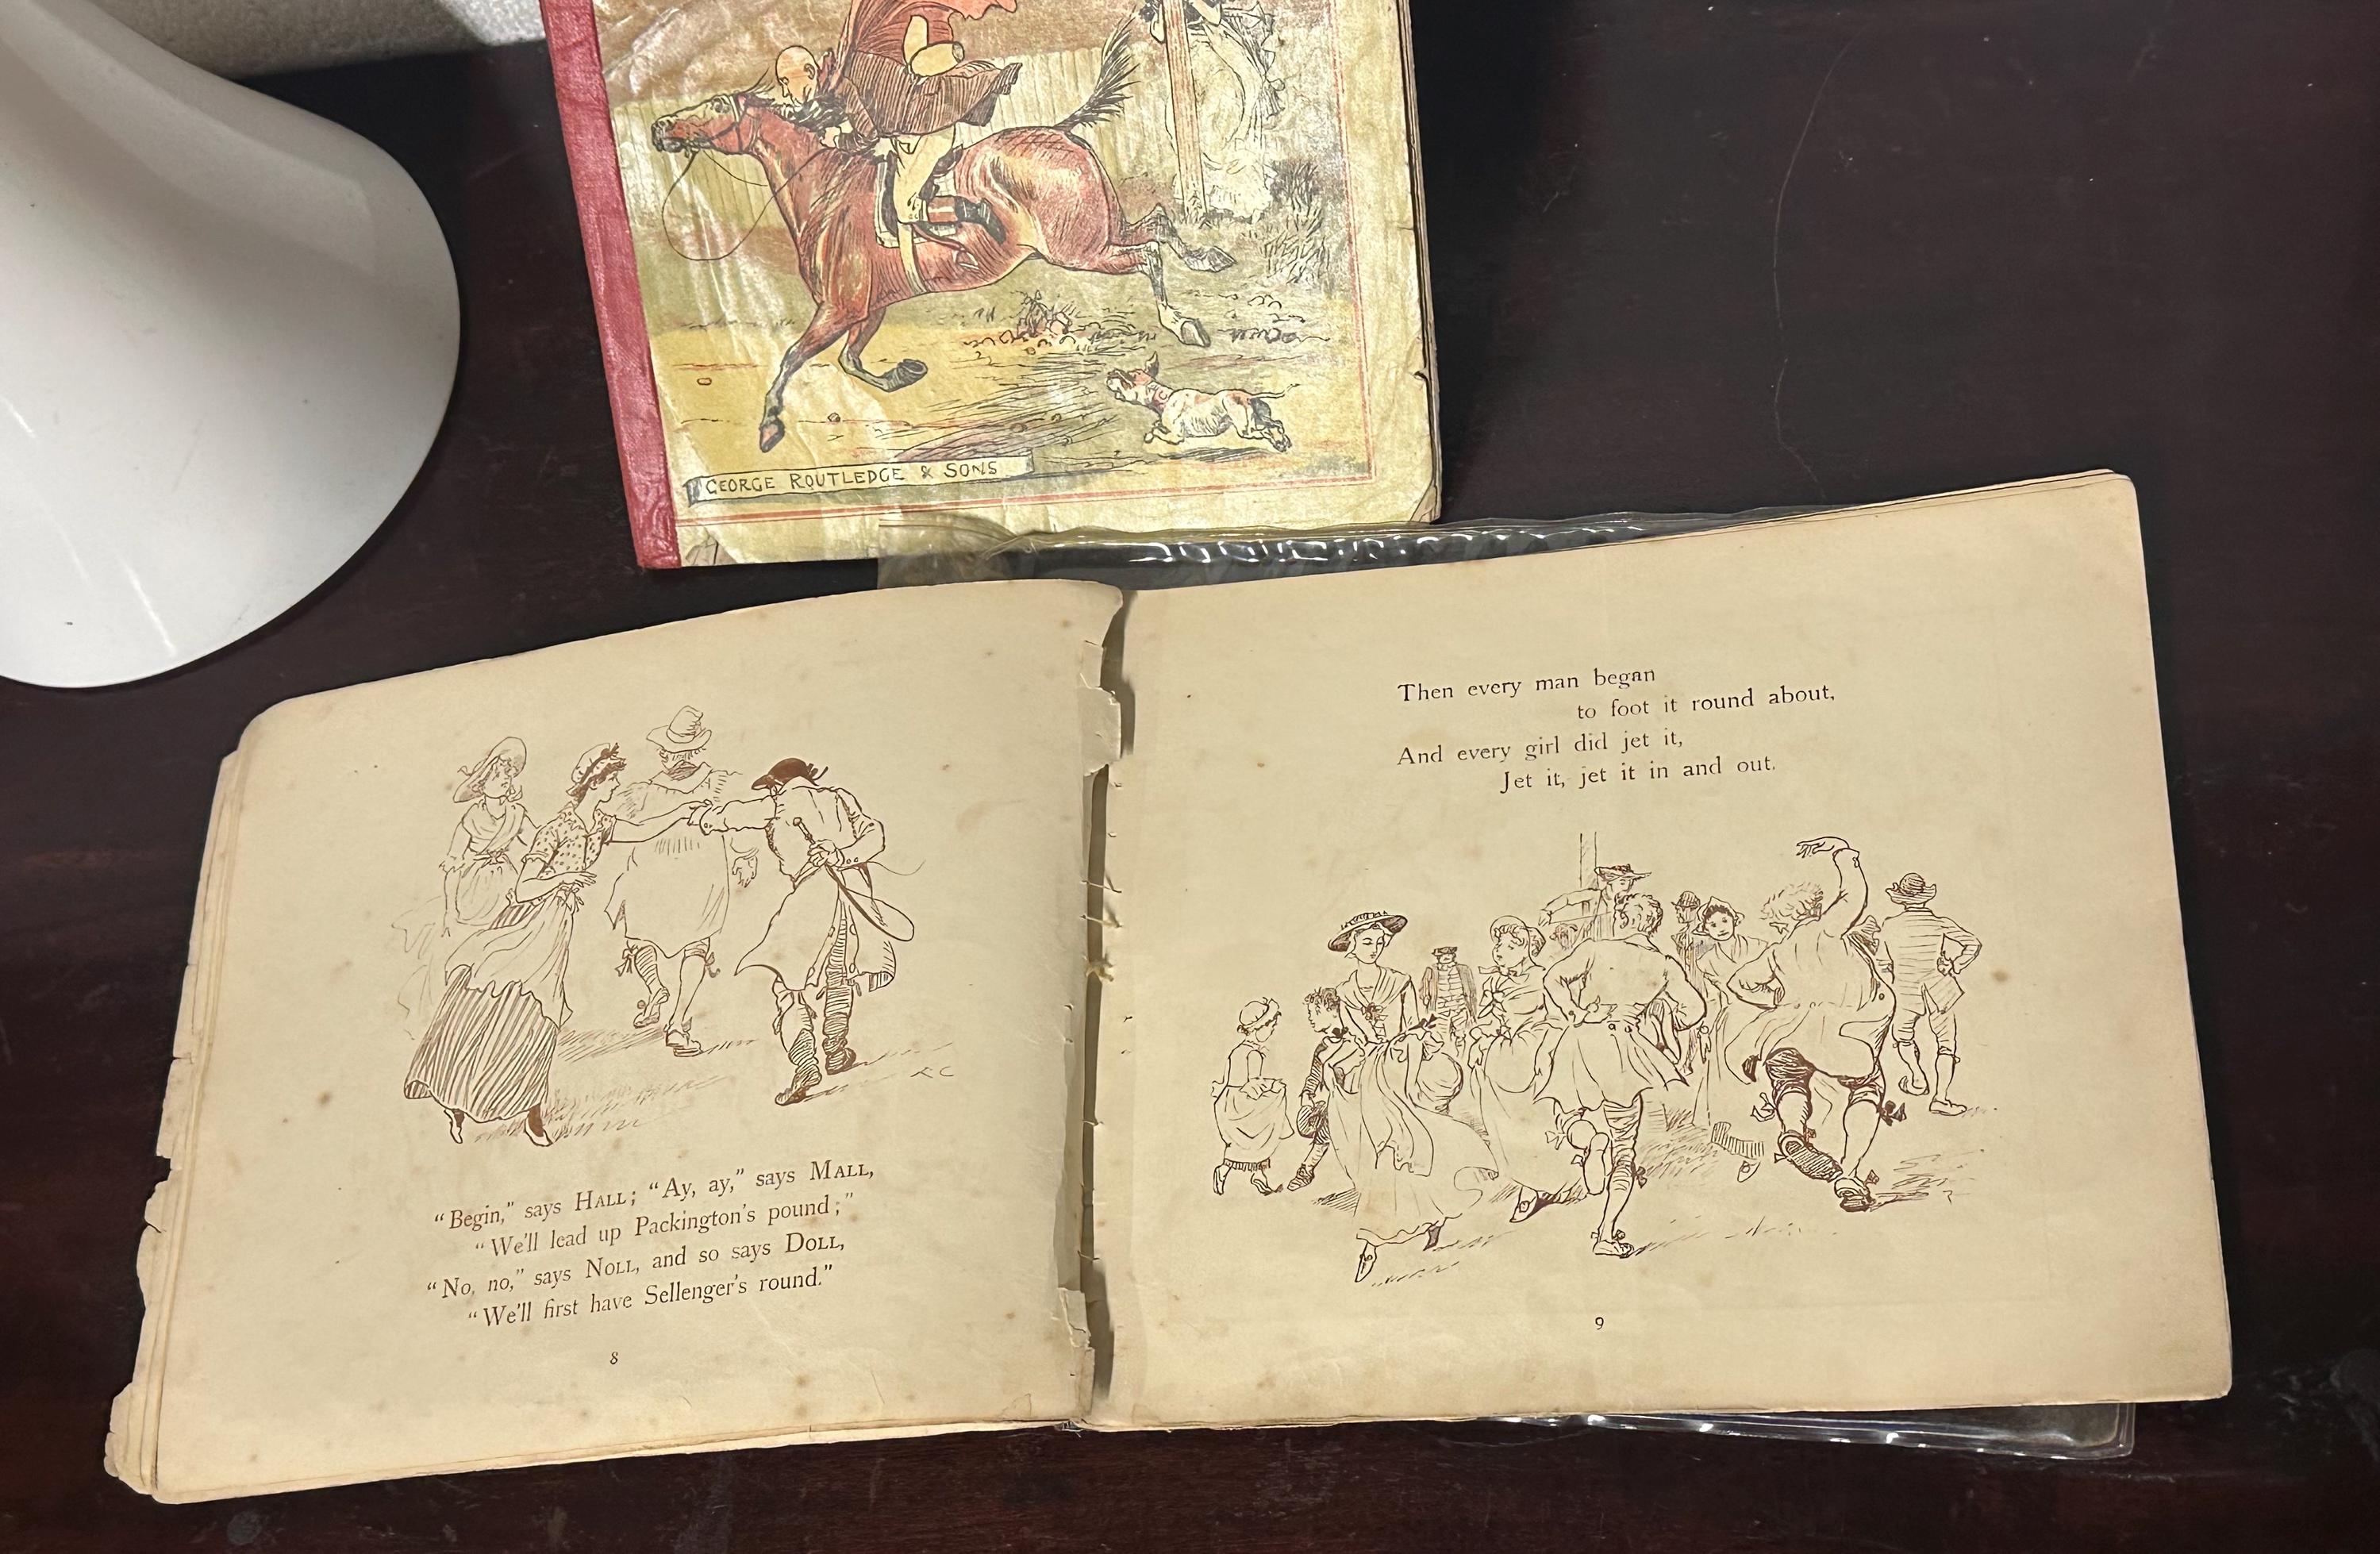 GEORGE ROUTLEDGE & SONS
"Begin," says HALL; "Ay, ay," says MALL,
"We'll lead up Packington's pound;"
"No, no," says NOLL, and so says DOLL,
"We'll first have Sellenger's round."
8
Then every man began
to foot it round about,
And every girl did jet it,
Jet it, jet it in and out.
9
RC